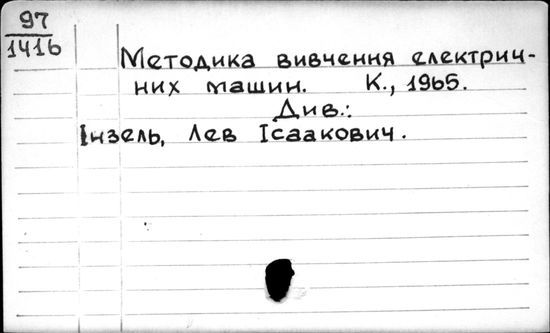 97
1416
Методика вивчення електрич-
них машин. К., 1965.
Див.:
Інзель, Лев Ісаакович.